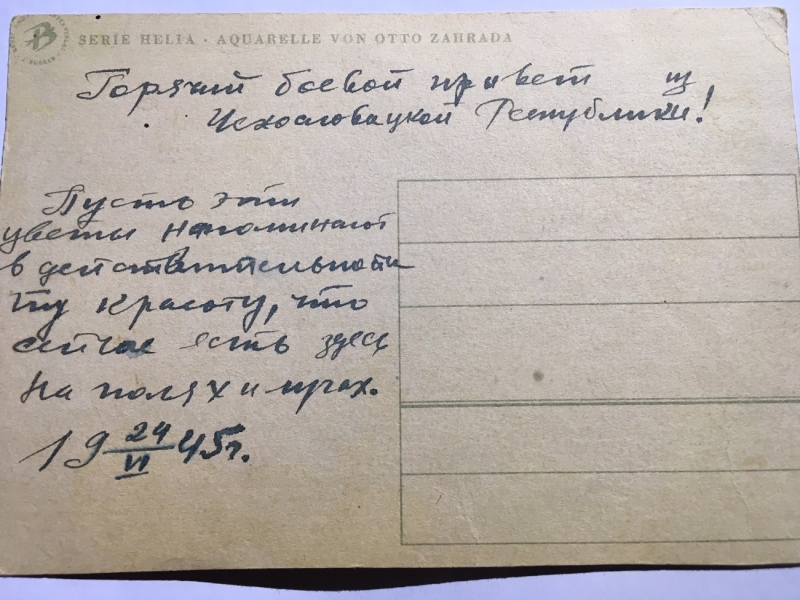 SERIE HELIA · AQUARELLE VON OTTO ZAHRADA
Горячий боевой привет из
Чехословацкой Республики!
Пусть эти
цветы напоминают
в действительности
ту красоту, что
сейчас есть здесь
на полях и лугах.
19 24/VI 45г.